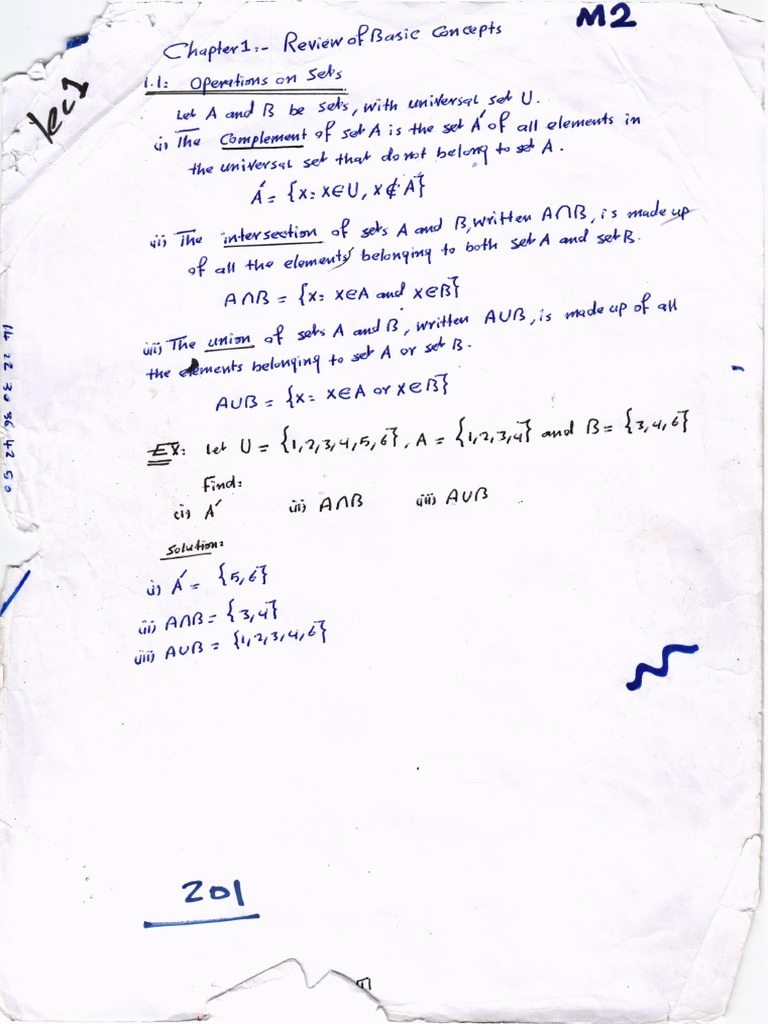 M2
lec1
Chapter1:- Review of Basic Concepts
1.1: Operations on Sets
Let A and B be sets, with universal set U.
i) The Complement of set A is the set A′ of all elements in
the universal set that do not belong to set A.
A′ = {x: x∈U, x∉A}
ii) The intersection of sets A and B, written A∩B, is made up
of all the elements belonging to both set A and set B.
A∩B = {x: x∈A and x∈B}
iii) The union of sets A and B, written A∪B, is made up of all
the elements belonging to set A or set B.
A∪B = {x: x∈A or x∈B}
EX: let U = {1,2,3,4,5,6}, A = {1,2,3,4} and B = {3,4,6}
Find:
(i) A′ ii) A∩B iii) A∪B
Solution:
i) A′ = {5,6}
ii) A∩B = {3,4}
iii) A∪B = {1,2,3,4,6}
14 22 30 36 42 50
201